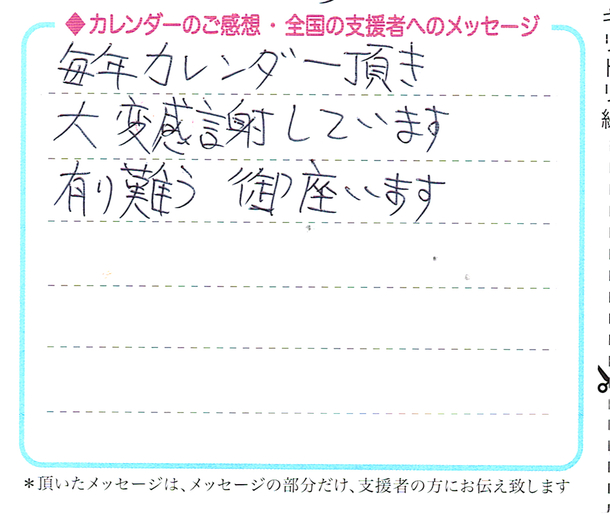 ◆カレンダーのご感想・全国の支援者へのメッセージ
毎年カレンダー頂き
大変感謝しています
有り難う 御座います
*頂いたメッセージは、メッセージの部分だけ、支援者の方にお伝え致します
キリトリ線